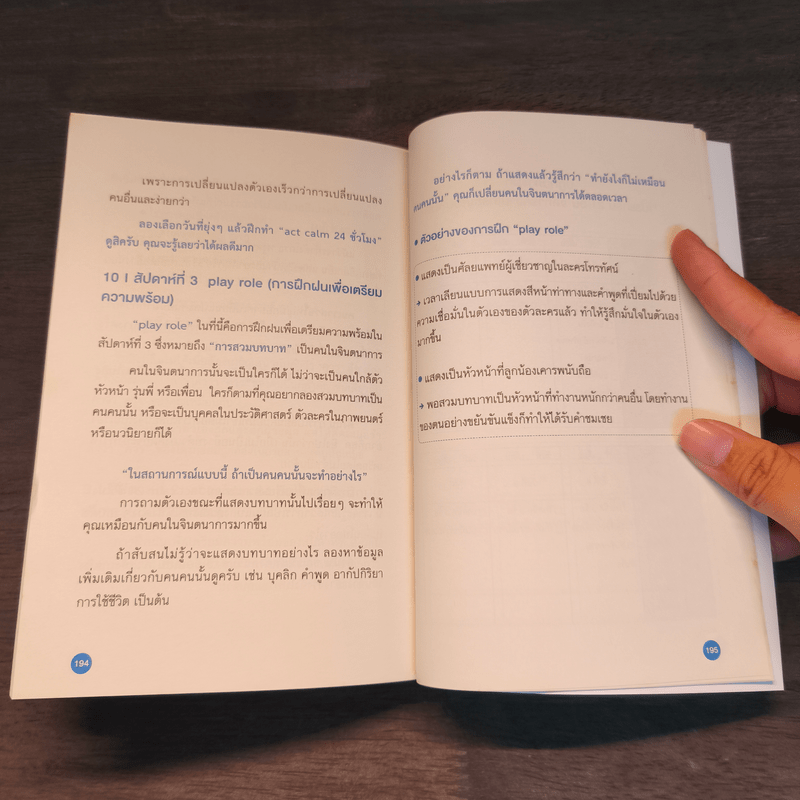 เพราะการเปลี่ยนแปลงตัวเองเร็วกว่าการเปลี่ยนแปลง
คนอื่นและง่ายกว่า
ลองเลือกวันที่ยุ่งๆ แล้วฝึกทำ “act calm 24 ชั่วโมง”
ดูสิครับ คุณจะรู้เลยว่าได้ผลดีมาก
10 I สัปดาห์ที่ 3 play role (การฝึกฝนเพื่อเตรียม
ความพร้อม)
“play role” ในที่นี้คือการฝึกฝนเพื่อเตรียมความพร้อมใน
สัปดาห์ที่ 3 ซึ่งหมายถึง “การสวมบทบาท” เป็นคนในจินตนาการ
คนในจินตนาการนั้นจะเป็นใครก็ได้ ไม่ว่าจะเป็นคนใกล้ตัว
หัวหน้า รุ่นพี่ หรือเพื่อน ใครก็ตามที่คุณอยากลองสวมบทบาทเป็น
คนคนนั้น หรือจะเป็นบุคคลในประวัติศาสตร์ ตัวละครในภาพยนตร์
หรือนวนิยายก็ได้
“ในสถานการณ์แบบนี้ ถ้าเป็นคนคนนั้นจะทำอย่างไร”
การถามตัวเองขณะที่แสดงบทบาทนั้นไปเรื่อยๆ จะทำให้
คุณเหมือนกับคนในจินตนาการมากขึ้น
ถ้าสับสนไม่รู้ว่าจะแสดงบทบาทอย่างไร ลองหาข้อมูล
เพิ่มเติมเกี่ยวกับคนคนนั้นดูครับ เช่น บุคลิก คำพูด อากัปกิริยา
การใช้ชีวิต เป็นต้น
194
อย่างไรก็ตาม ถ้าแสดงแล้วรู้สึกว่า “ทำยังไงก็ไม่เหมือน
คนคนนั้น” คุณก็เปลี่ยนคนในจินตนาการได้ตลอดเวลา
• ตัวอย่างของการฝึก “play role”
• แสดงเป็นศัลยแพทย์ผู้เชี่ยวชาญในละครโทรทัศน์
→ เวลาเลียนแบบการแสดงสีหน้าท่าทางและคำพูดที่เปี่ยมไปด้วย
ความเชื่อมั่นในตัวเองของตัวละครแล้ว ทำให้รู้สึกมั่นใจในตัวเอง
มากขึ้น
• แสดงเป็นหัวหน้าที่ลูกน้องเคารพนับถือ
→ พอสวมบทบาทเป็นหัวหน้าที่ทำงานหนักกว่าคนอื่น โดยทำงาน
ของตนอย่างขยันขันแข็งก็ทำให้ได้รับคำชมเชย
195